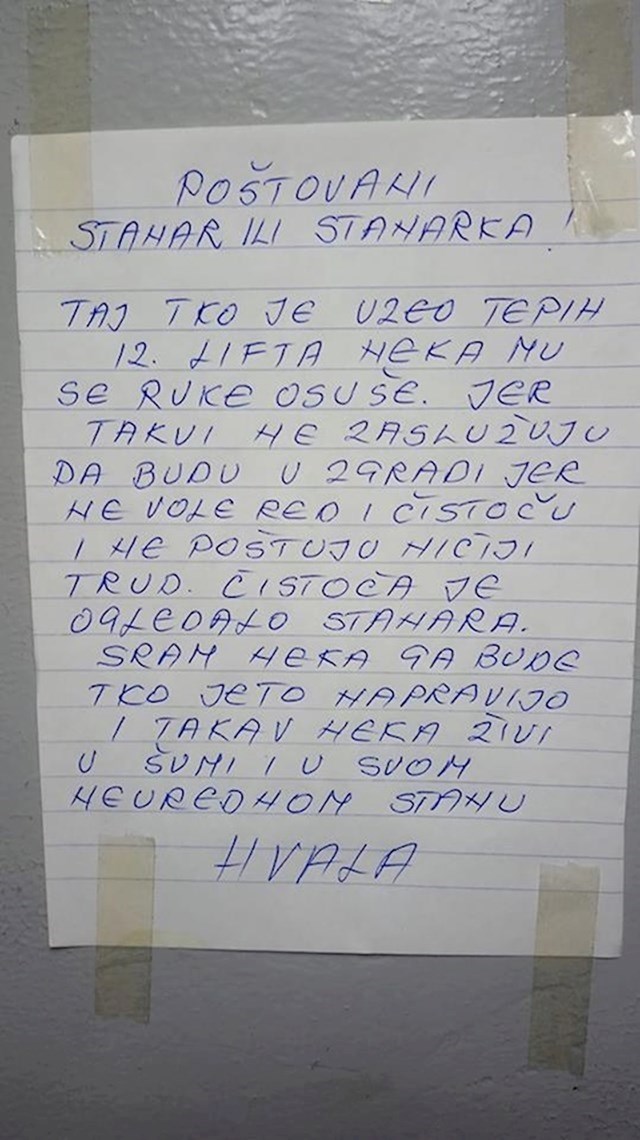 POŠTOVANI
STANAR ILI STANARKA!
TAJ TKO JE UZEO TEPIH
IZ. LIFTA NEKA MU
SE RUKE OSUŠE. JER
TAKVI NE ZASLUŽUJU
DA BUDU U ZGRADI JER
NE VOLE RED I ČISTOČU
I NE POŠTUJU NIČIJI
TRUD. ČISTOČA JE
OGLEDALO STANARA.
SRAM NEKA GA BUDE
TKO JETO NAPRAVIJO
I TAKAV NEKA ŽIVI
U ŠUMI I U SVOM
NEUREDNOM STANU
HVALA